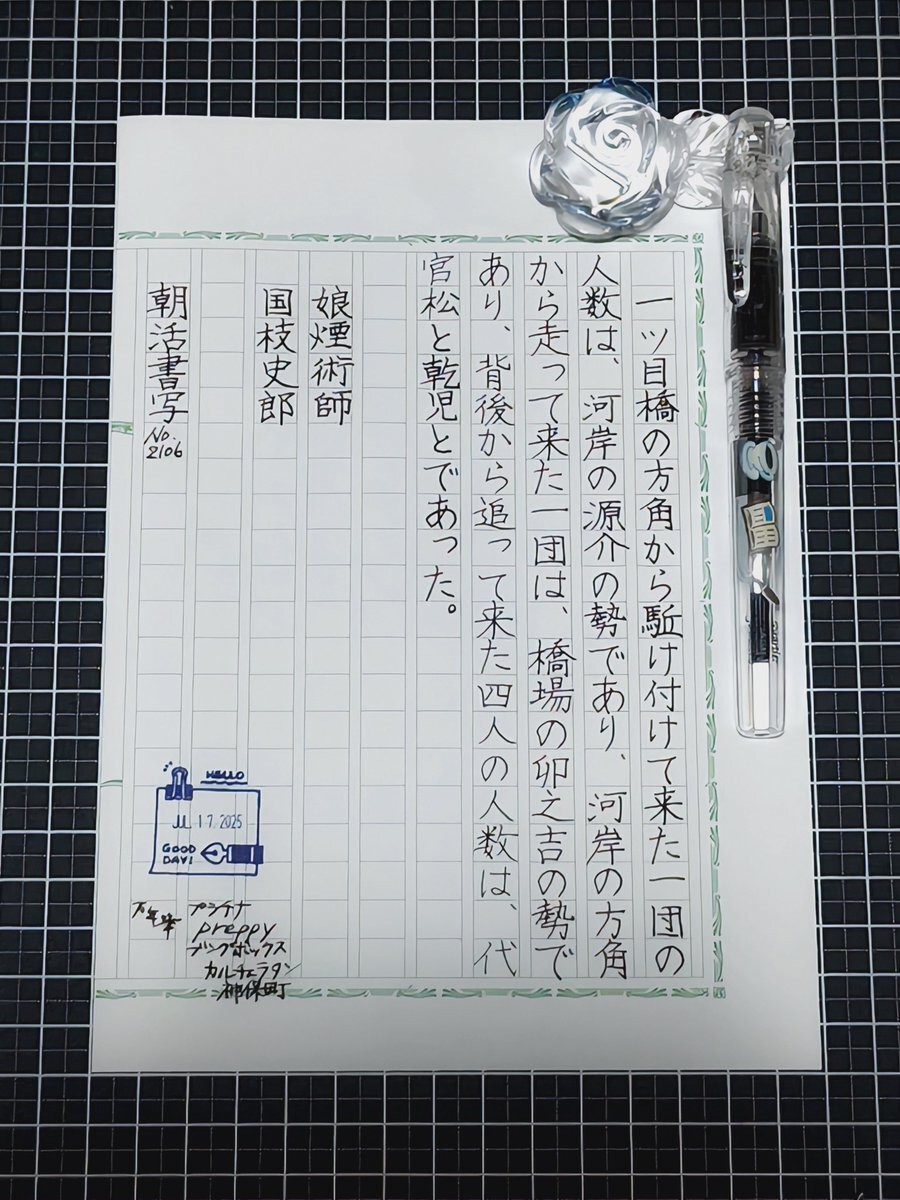 一ツ目橋の方角から駈け付けて来た一団の
人数は、河岸の源介の勢であり、河岸の方角
から走って来た一団は、橋場の卯之吉の勢で
あり、背後から追って来た四人の人数は、代
官松と乾児とであった。
娘煙術師
国枝史郎
朝活書写
No.
2106
HELLO
JUL 17 2025
GOOD
DAY!
万年筆
プラチナ
preppy
ブングボックス
カルチェラタン
神保町